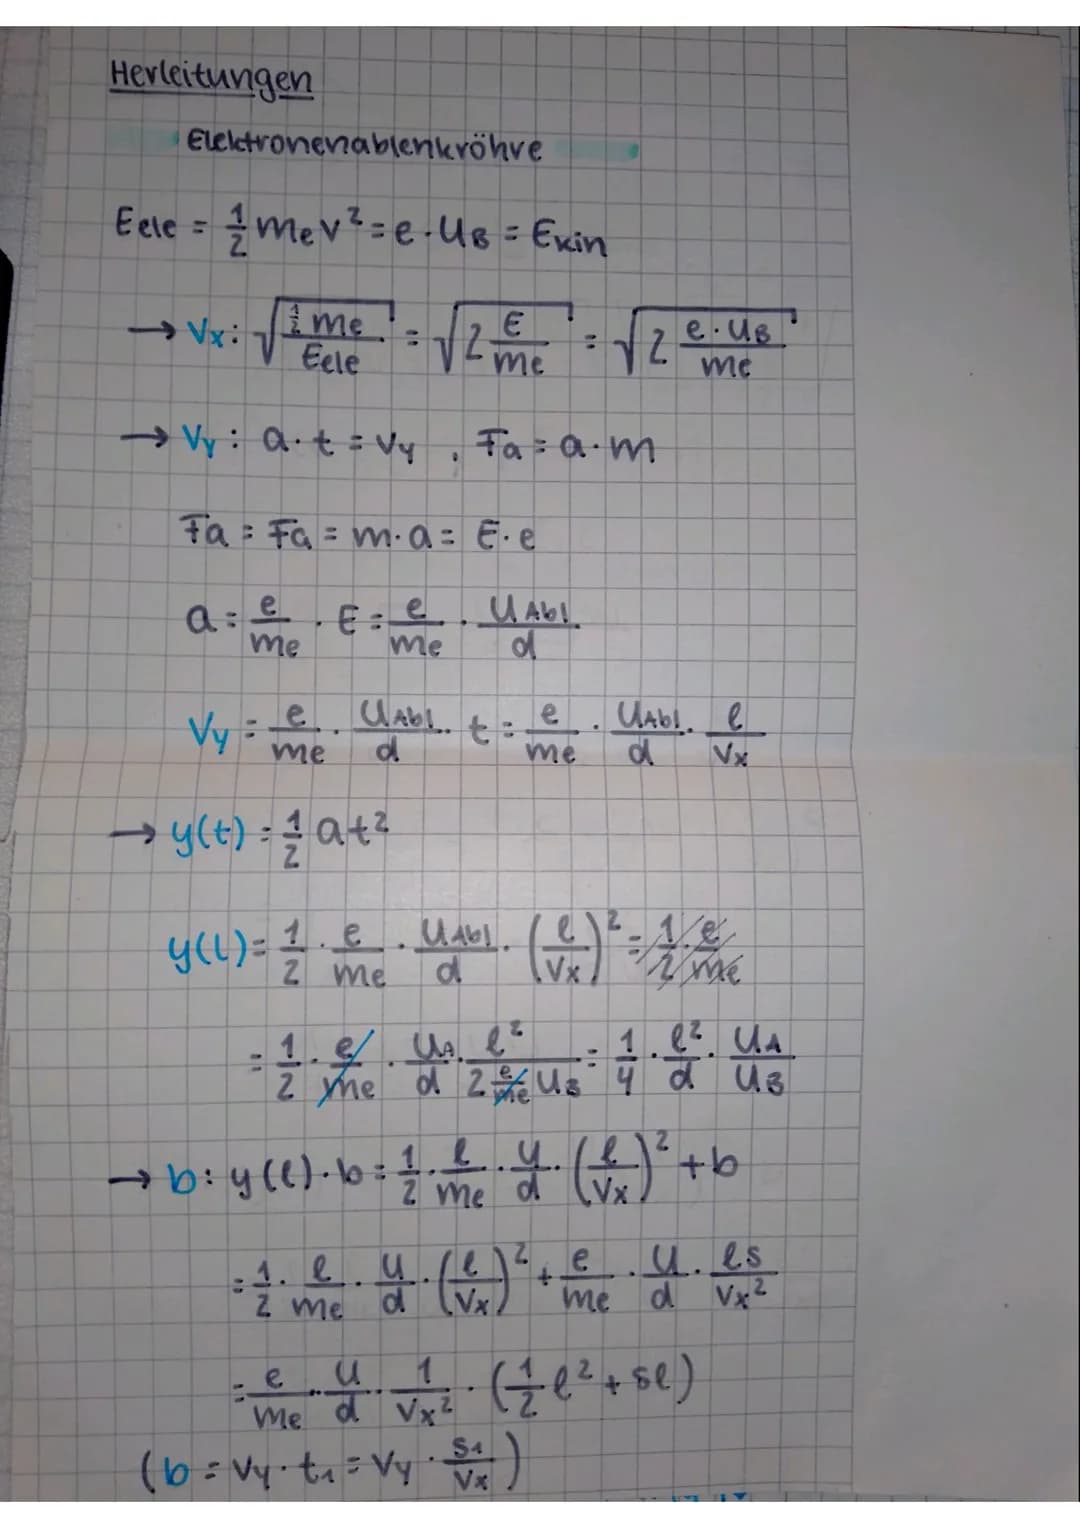 Herleitungen
Elektronenablenkröhre
Eele = 1/2 mev² = e · UB = Ekin
→ Vx: √(1/2 me / Eele) = √(2 E/me) = √(2 e·UB/me)
→ Vy: a · t = Vy , Fa = a · m
Fa = Fa = m · a = E · e
a = e/me · E = e/me · UAbl./d
Vy = e/me · UAbl./d · t = e/me · UAbl./d · l/Vx
→ y(t) = 1/2 at²
y(l) = 1/2 · e/me · UAbl./d · (l/Vx)² = 1/2 · e/me
= 1/2 · e/me · UA/d · l²/(2 e/me UB) = 1/4 · l²/d · UA/UB
→ b: y(l) · b = 1/2 · l/me · U/d · (l/Vx)² + b
= 1/2 · l/me · U/d · (l/Vx)² + e/me · U/d · ls/Vx²
= e/me · U/d · 1/Vx² · (1/2 l² + sl)
(b = Vy · t1 = Vy · S1/Vx)